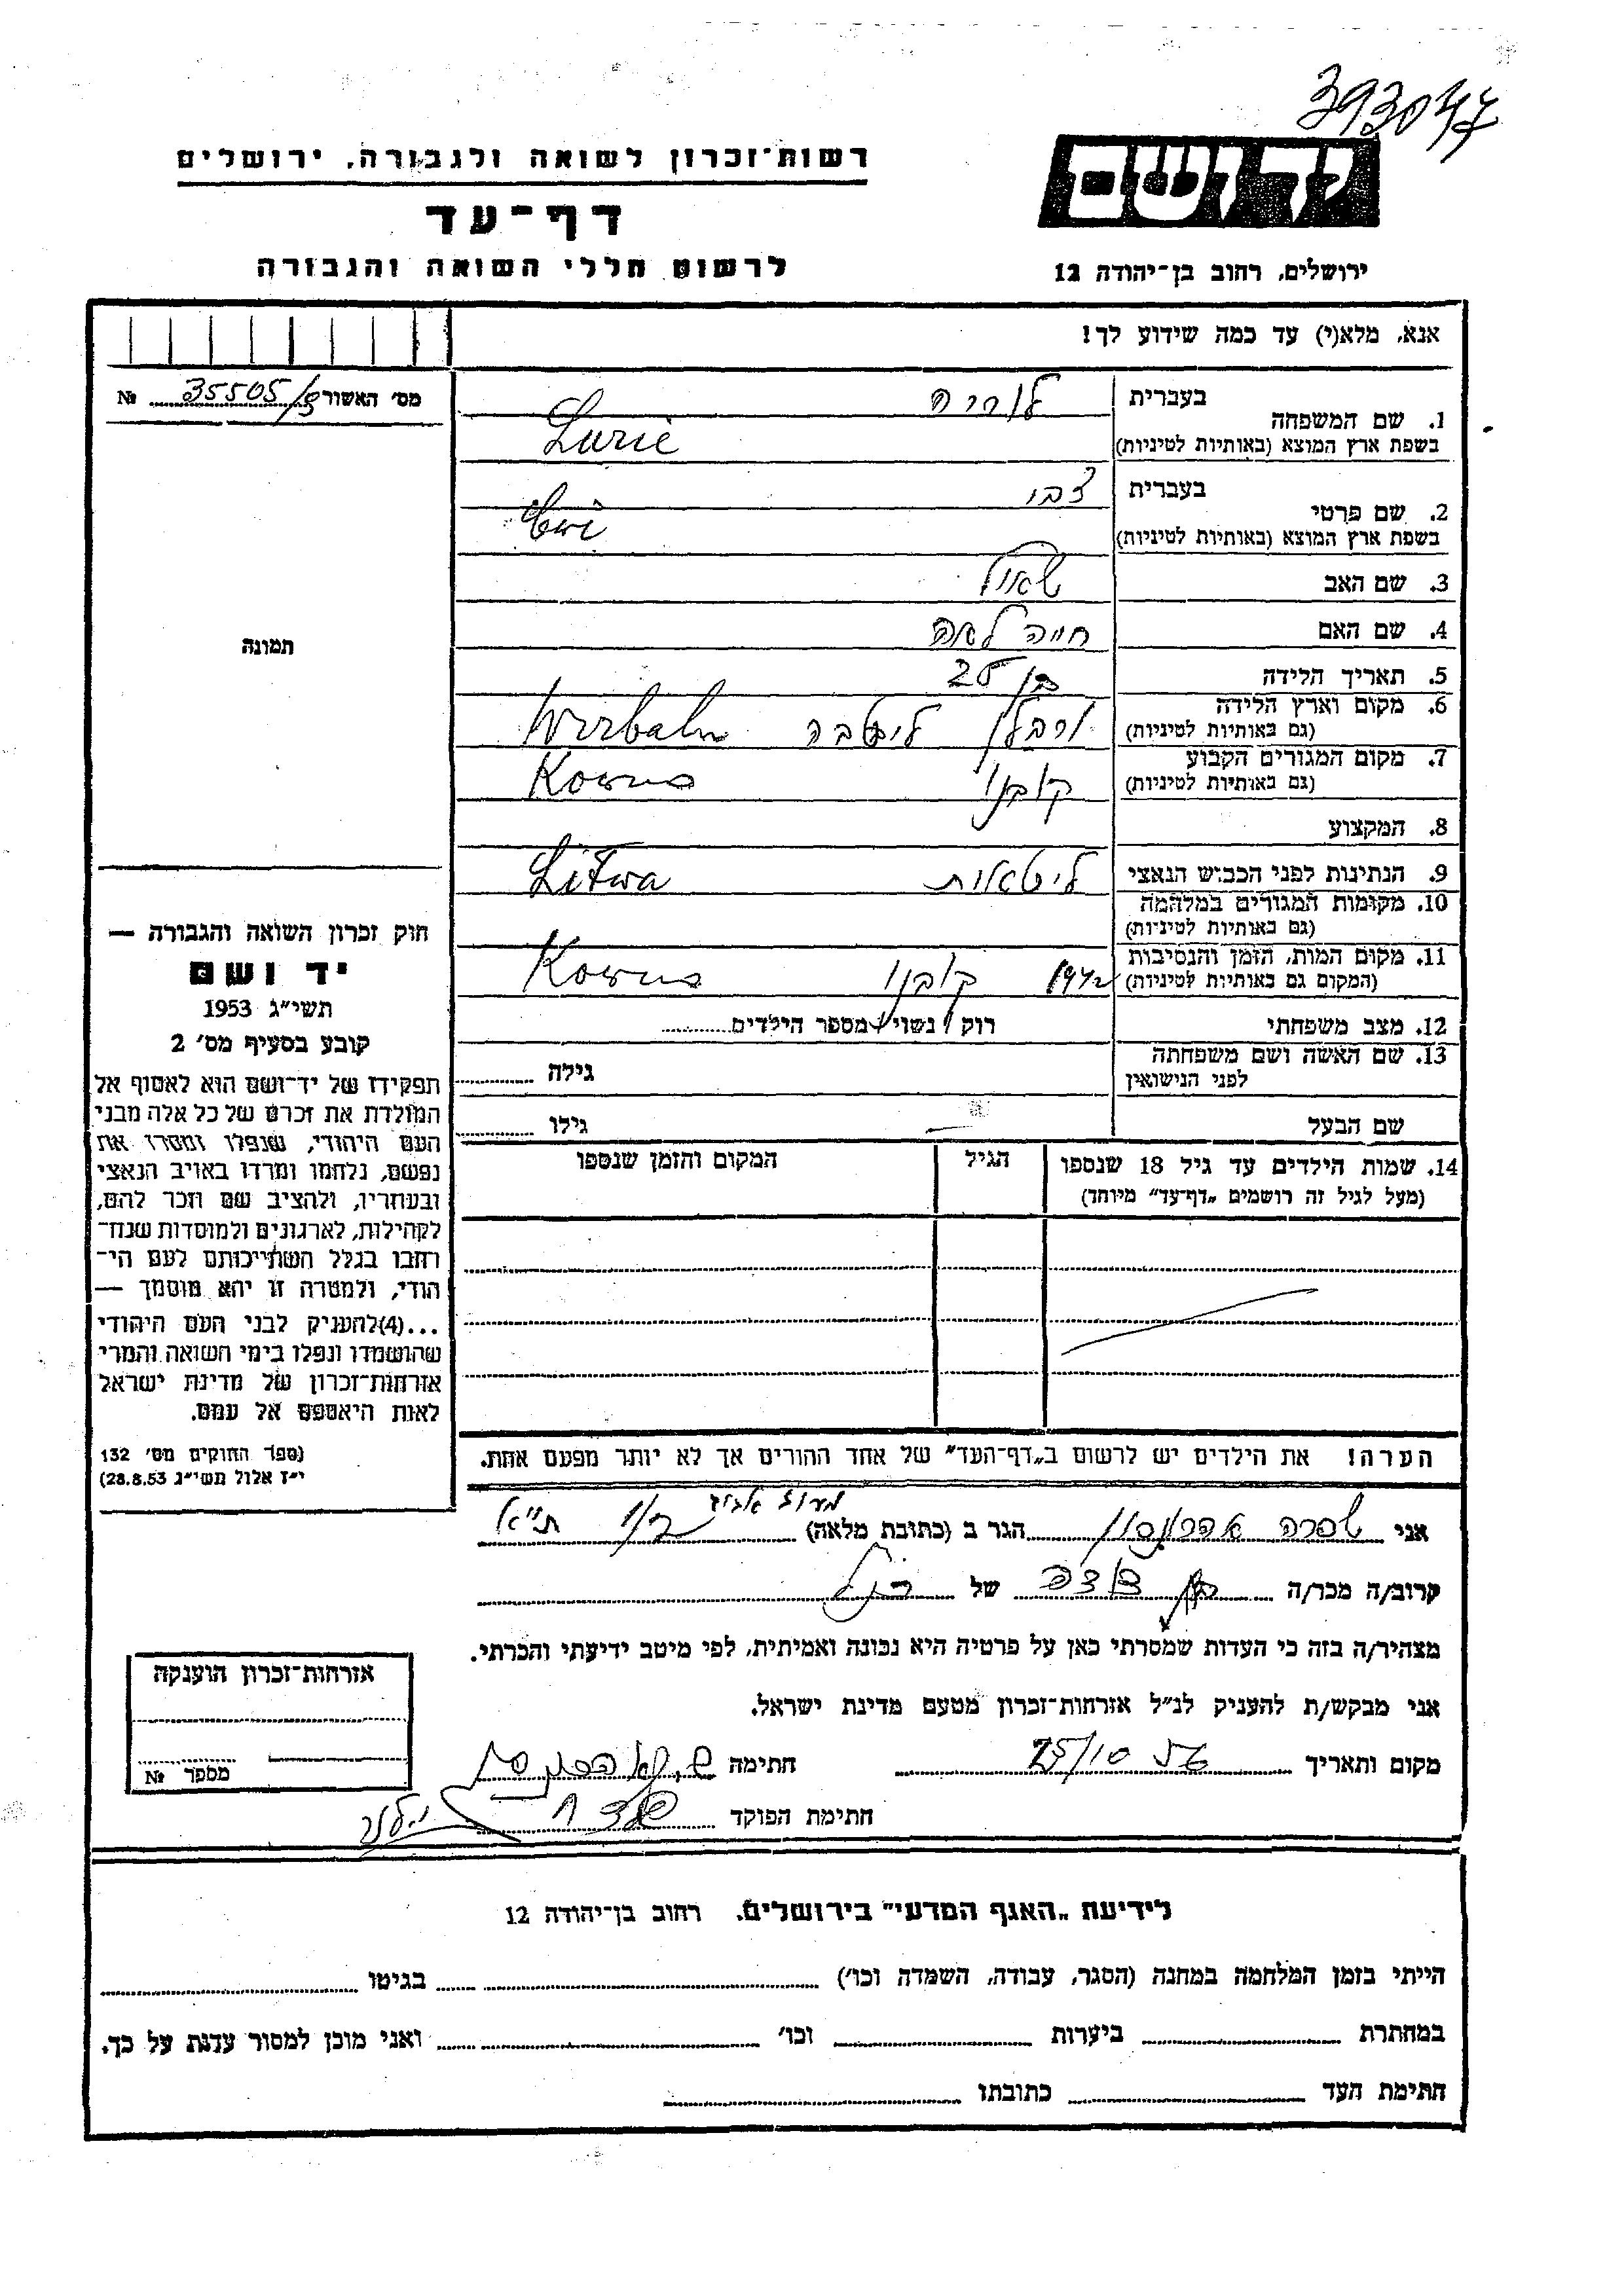 393047
יד ושם
רשות־זכרון לשואה ולגבורה, ירושלים
דף־עד
לרשום חללי השואה והגבורה
ירושלים, רחוב בן־יהודה 12
אנא, מלא(י) עד כמה שידוע לך!
מס' האשור 35505 №
תמונה
1. שם המשפחה
בעברית לוריה
בשפת ארץ המוצא (באותיות לטיניות) Lurie
2. שם פרטי
בעברית צבי
בשפת ארץ המוצא (באותיות לטיניות) Cwi
3. שם האב שאול
4. שם האם חייה לאה
5. תאריך הלידה בן 25
6. מקום וארץ הלידה
(גם באותיות לטיניות) ורבלן ליטבה Wirbaln
7. מקום המגורים הקבוע
(גם באותיות לטיניות) קובנו Kowno
8. המקצוע
9. הנתינות לפני הכבוש הנאצי ליטאית Litwa
10. מקומות המגורים במלחמה
(גם באותיות לטיניות)
11. מקום המות, הזמן והנסיבות
(המקום גם באותיות לטיניות) 1942 קובנו Kowno
12. מצב משפחתי רוק / נשוי / מספר הילדים
13. שם האשה ושם משפחתה
לפני הנישואין גילה
שם הבעל גילו
14. שמות הילדים עד גיל 18 שנספו
(מעל לגיל זה רושמים „דף־עד” מיוחד)
הגיל
המקום והזמן שנספו
חוק זכרון השואה והגבורה —
יד ושם
תשי״ג 1953
קובע בסעיף מס' 2
תפקידו של יד־ושם הוא לאסוף אל
המולדת את זכרם של כל אלה מבני
העם היהודי, שנפלו ומסרו את
נפשם, נלחמו ומרדו באויב הנאצי
ובעוזריו, ולהציב שם וזכר להם,
לקהילות, לארגונים ולמוסדות שנח־
רחבו בגלל השתייכותם לעם הי־
הודי, ולמטרה זו יהא מוסמך —
...(4)להעניק לבני העם היהודי
שהושמדו ונפלו בימי השואה והמרי
אזרחות־זכרון של מדינת ישראל
לאות היאספם אל עמם.
(ספר החוקים מס' 132
י״ז אלול תשי״ג 28.8.53)
הערה! את הילדים יש לרשום ב„דף־העד” של אחד ההורים אך לא יותר מפעם אחת.
אני שפרה אהרונסון הגר ב (כתובת מלאה) ת״א
קרוב/ה מכר/ה בן דודה של הנ״ל
מצהיר/ה בזה כי העדות שמסרתי כאן על פרטיה היא נכונה ואמיתית, לפי מיטב ידיעתי והכרתי.
אני מבקש/ת להעניק לנ״ל אזרחות־זכרון מטעם מדינת ישראל.
מקום ותאריך 25/10 56 חתימה ש. אהרונסון
חתימת הפוקד
אזרחות־זכרון הוענקה
מספר №
לידיעת „האגף המדעי” בירושלים, רחוב בן־יהודה 12
הייתי בזמן המלחמה במחנה (הסגר, עבודה, השמדה וכו') בגיטו
במחתרת ביערות וכו' ואני מוכן למסור עדות על כך.
חתימת העד כתובתו